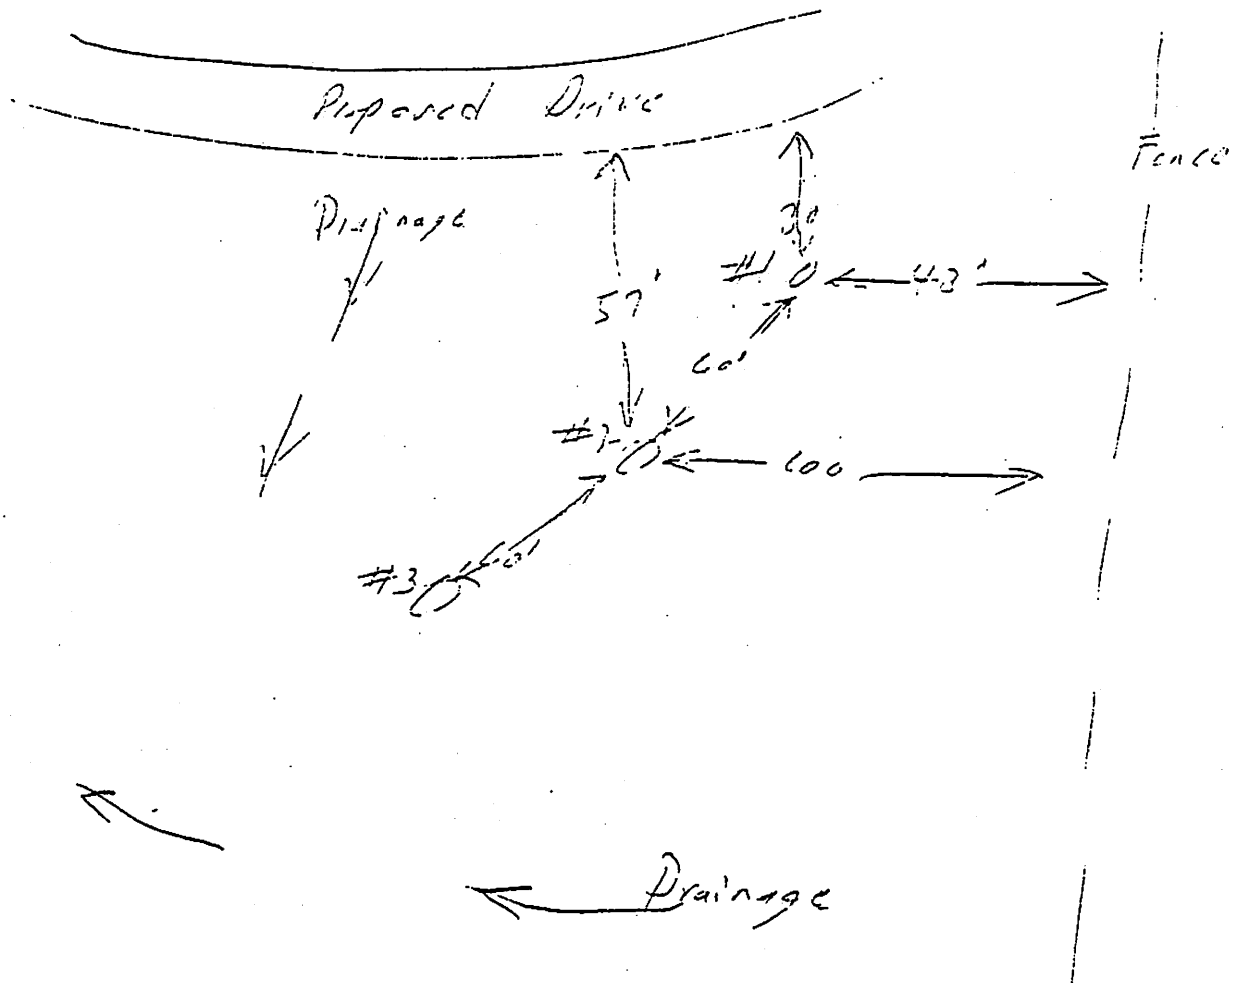 Proposed Drive
Fence
Drainage
30'
#1
48'
57'
60'
#2
100
60'
#3
Drainage